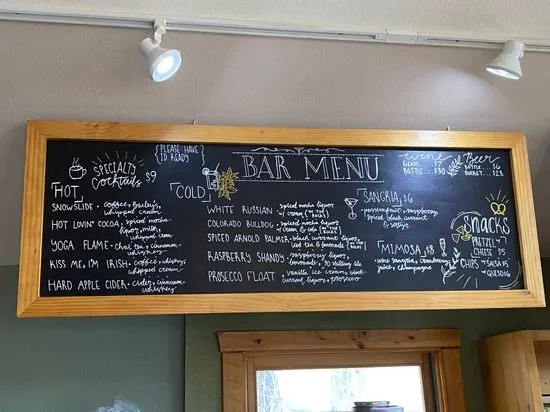 {PLEASE HAVE
ID READY}
BAR MENU
SPECIALTY
Cocktails $9
HOT
SNOWSLIDE - coffee, Bailey's,
whipped cream
HOT LOVIN' COCOA - spiced mocha
liquor, milk,
whipped cream
YOGA FLAME - chai tea, cinnamon
whiskey
KISS ME, I'M IRISH - coffee, whiskey,
whipped cream
HARD APPLE CIDER - cider, cinnamon
whiskey
COLD
WHITE RUSSIAN - spiced mocha liquor
+ cream (ON THE ROCKS)
COLORADO BULLDOG - spiced mocha liquor,
cream & cola (ON THE ROCKS)
SPICED ARNOLD PALMER - black currant liquor,
iced tea & lemonade (ON THE ROCKS)
RASPBERRY SHANDY - raspberry liquor,
lemonade, 90 shilling ale
PROSECCO FLOAT - vanilla ice cream, black
currant liquor, prosecco
wine
GLASS... $7
BOTTLE... $30
Beer
BOTTLE... $6
BUCKET... $25
SANGRIA, $6
passionfruit, raspberry,
spiced black currant
& seltzer
MIMOSA $8
wine sangria, cranberry
juice, champagne
SNACKS
PRETZEL +
CHEESE $5
CHIPS + SALSA $5
+ QUESO $6